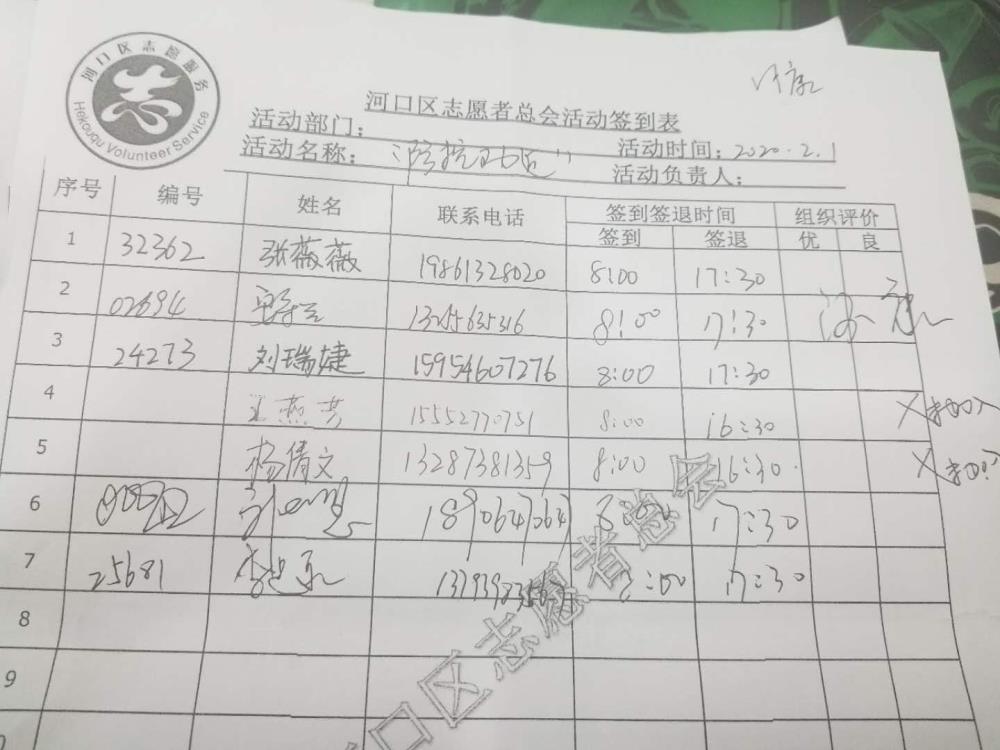 河口区志愿服务
Hekouqu Volunteer Service
河口区志愿者总会活动签到表
活动部门：
活动时间：2020.2.1
活动名称：
活动负责人：
序号 编号 姓名 联系电话 签到签退时间 组织评价
签到 签退 优 良
1 32362 张薇薇 19861328020 8:00 17:30
2 02694 13255635316 8:00 17:30
3 24273 刘瑞婕 15954607276 8:00 17:30
4 王燕芳 15552770751 8:00 16:30
5 杨倩文 13287381359 8:00 16:30
6 17:30
7 25681 8:00 17:30
8
9
口区志愿者总会